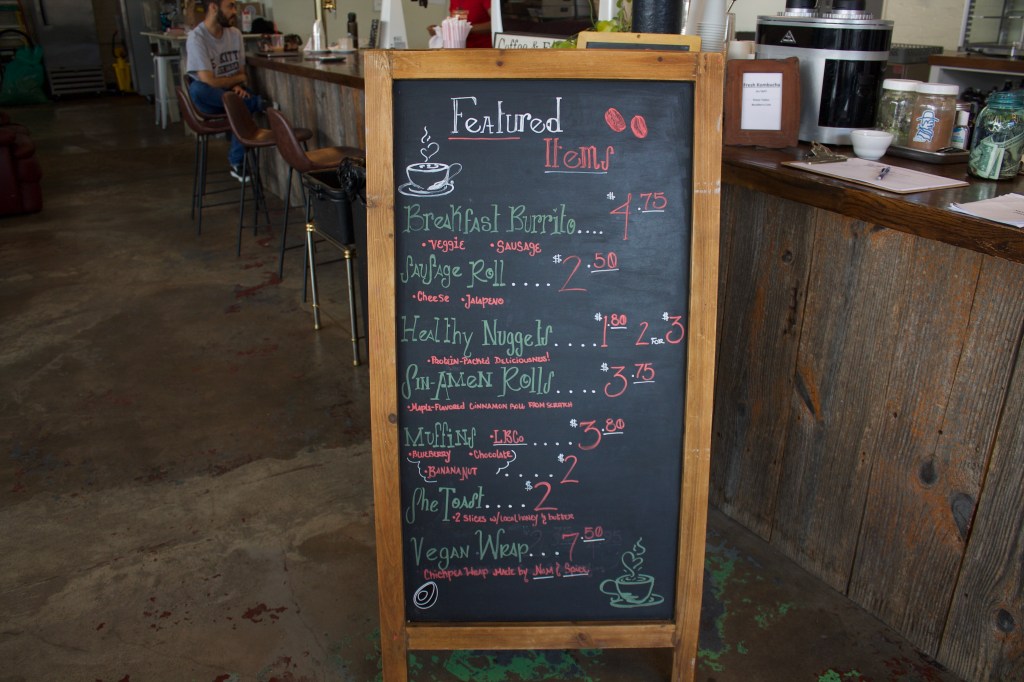 Coffee &
Fresh Kombucha
Featured
Items
Breakfast Burrito.... $4.75
• Veggie • Sausage
Sausage Roll.... $2.50
• Cheese • Jalapeno
Healthy Nuggets.....$1.80 2 FOR $3
• Protein-Packed Deliciousness!
Sin-Amen Rolls.... $3.75
• Maple-Flavored Cinnamon Roll From Scratch
Muffins • LBCo ..... $3.80
• Blueberry • Chocolate
• Banana Nut ..... $2
She Toast.... $2
• 2 slices w/local honey & butter
Vegan Wrap... $7.50
Chickpea Wrap Made by Nam & Spice